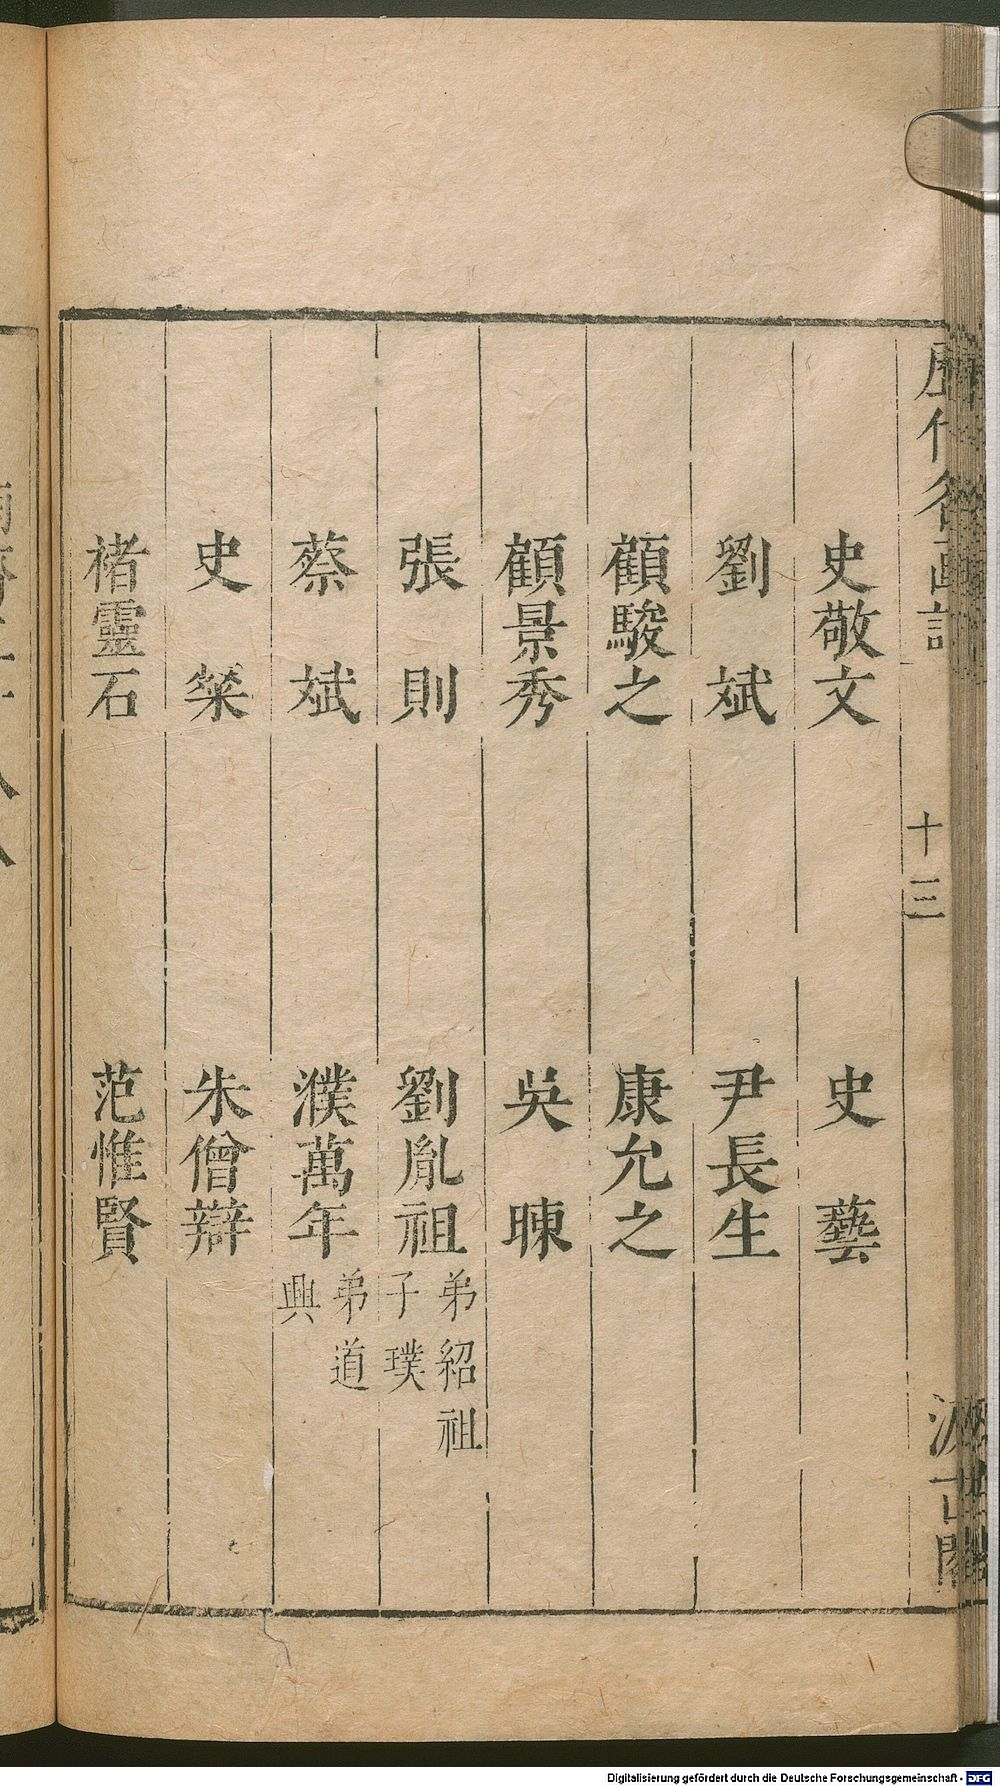 史敬文　史藝
劉斌　尹長生
顧駿之　康允之
顧景秀　吳暕
張則　劉胤祖　弟紹祖　子璞
蔡斌　濮萬年　弟道興
史粲　朱僧辯
褚靈石　范惟賢
歷代名画記　十三　汲古閣
Digitalisierung gefördert durch die Deutsche Forschungsgemeinschaft - DFG